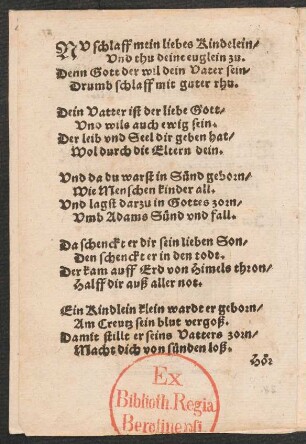 NV schlaff mein liebes Kindelein/
Vnd thu deine euglein zu.
Denn Gott der wil dein Vater sein/
Drumb schlaff mit guter rhu.
Dein Vatter ist der liebe Gott/
Vnd wils auch ewig sein.
Der leib vnd Seel dir geben hat/
Wol durch die Eltern dein.
Vnd da du warst in Sünd geborn/
Wie Menschen kinder all.
Vnd lagst darzu in Gottes zorn/
Vmb Adams Sünd vnd fall.
Da schenckt er dir sein lieben Son/
Den schenckt er in den todt.
Der kam auff Erd von Himels thron/
Halff dir auß aller not.
Ein Kindlein klein wardt er geborn/
Am Creutz sein blut vergoß.
Damit stillt er seins Vatters zorn/
Macht dich von sünden loß.
Hör
Ex
Biblioth. Regia
Berolinensi.